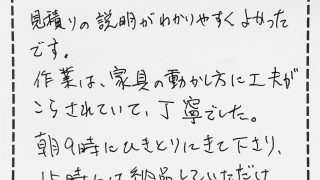 見積りの説明がわかりやすくよかった
です。
作業は、家具の動かし方に工夫が
こらされていて、丁寧でした。
朝9時にひきとりにきて下さり、
15時には納品していただけ